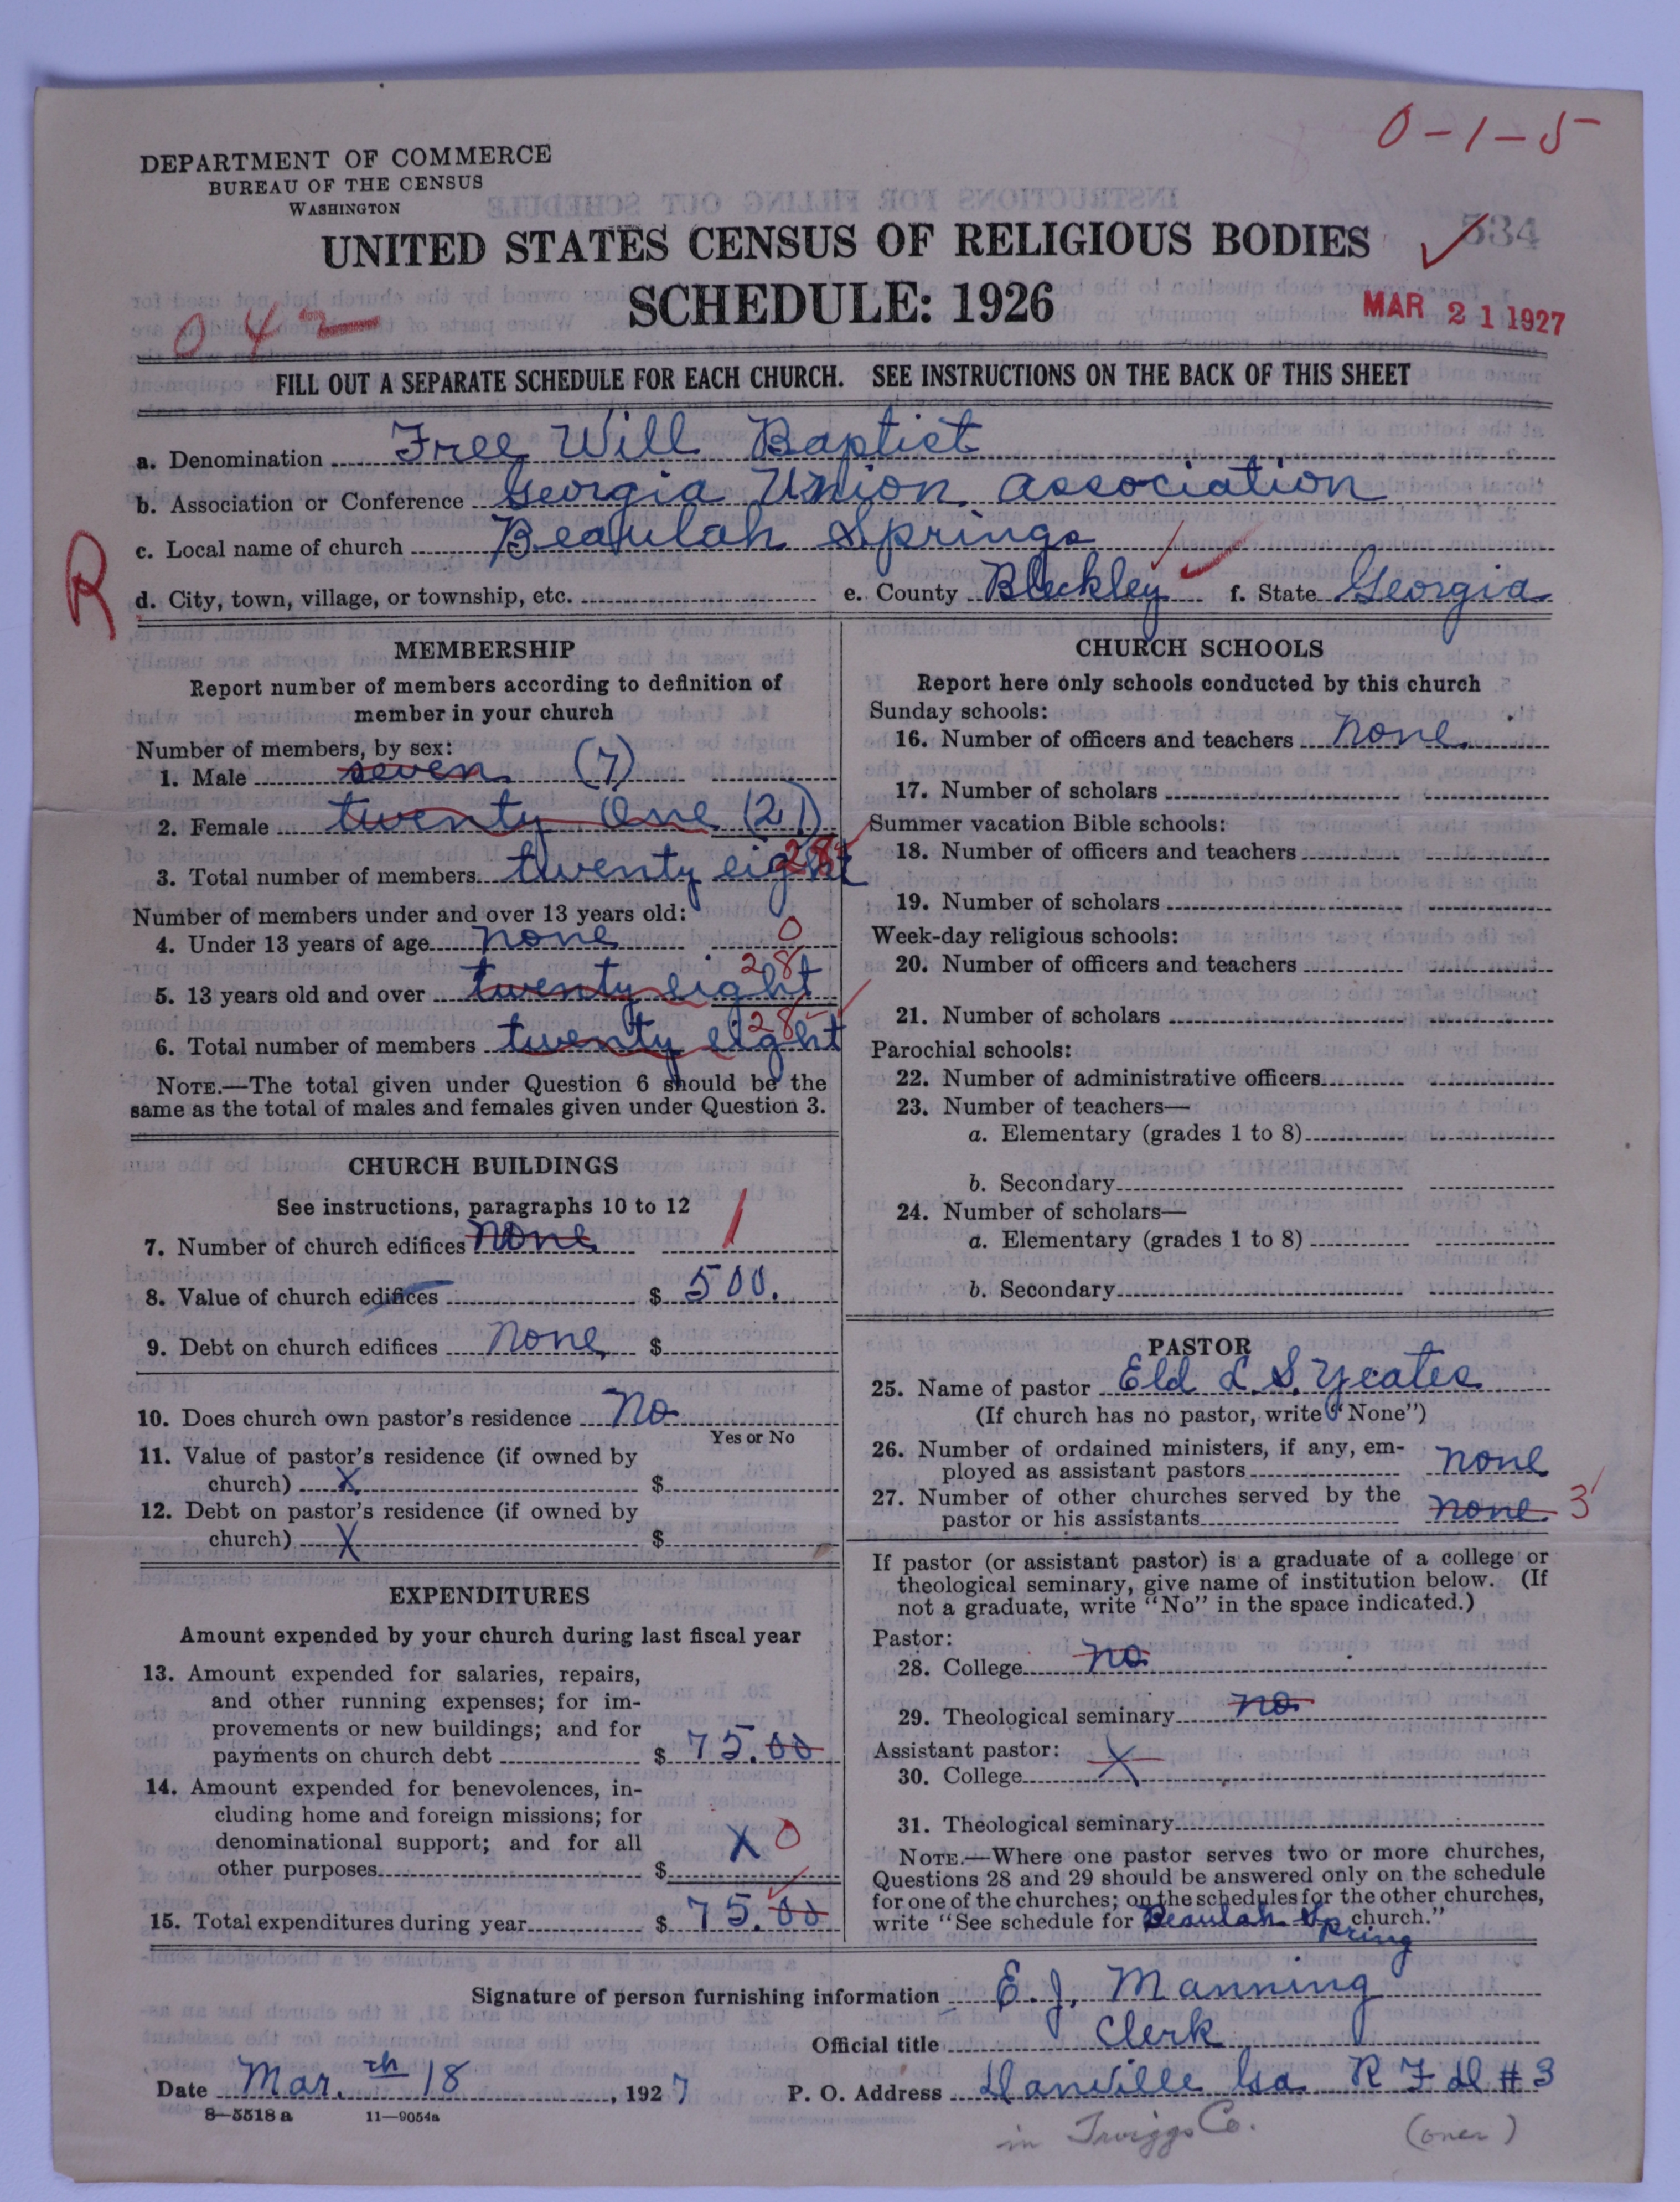 0-1-5
DEPARTMENT OF COMMERCE
BUREAU OF THE CENSUS
WASHINGTON
534
UNITED STATES CENSUS OF RELIGIOUS BODIES
SCHEDULE: 1926
MAR 21 1927
042
FILL OUT A SEPARATE SCHEDULE FOR EACH CHURCH. SEE INSTRUCTIONS ON THE BACK OF THIS SHEET
a. Denomination Free Will Baptist
b. Association or Conference Georgia Union association
c. Local name of church Beaulah Springs
R
d. City, town, village, or township, etc. e. County Bleckley f. State Georgia
MEMBERSHIP
Report number of members according to definition of
member in your church
Number of members, by sex:
1. Male seven (7)
2. Female twenty One (21)
3. Total number of members twenty eight 28
Number of members under and over 13 years old:
4. Under 13 years of age none 0
5. 13 years old and over twenty eight 28
6. Total number of members twenty eight 28
NOTE.—The total given under Question 6 should be the
same as the total of males and females given under Question 3.
CHURCH BUILDINGS
See instructions, paragraphs 10 to 12
7. Number of church edifices none 1
8. Value of church edifices $ 500.
9. Debt on church edifices none $
10. Does church own pastor's residence No
Yes or No
11. Value of pastor's residence (if owned by
church) X $
12. Debt on pastor's residence (if owned by
church) X $
EXPENDITURES
Amount expended by your church during last fiscal year
13. Amount expended for salaries, repairs,
and other running expenses; for im-
provements or new buildings; and for
payments on church debt $ 75.00
14. Amount expended for benevolences, in-
cluding home and foreign missions; for
denominational support; and for all
other purposes $ X 0
15. Total expenditures during year $ 75.00
CHURCH SCHOOLS
Report here only schools conducted by this church
Sunday schools:
16. Number of officers and teachers none
17. Number of scholars
Summer vacation Bible schools:
18. Number of officers and teachers
19. Number of scholars
Week-day religious schools:
20. Number of officers and teachers
21. Number of scholars
Parochial schools:
22. Number of administrative officers
23. Number of teachers—
a. Elementary (grades 1 to 8)
b. Secondary
24. Number of scholars—
a. Elementary (grades 1 to 8)
b. Secondary
PASTOR
25. Name of pastor Eld L. S. Yeates
(If church has no pastor, write "None")
26. Number of ordained ministers, if any, em-
ployed as assistant pastors none
27. Number of other churches served by the
pastor or his assistants none 3
If pastor (or assistant pastor) is a graduate of a college or
theological seminary, give name of institution below. (If
not a graduate, write "No" in the space indicated.)
Pastor:
28. College no
29. Theological seminary no
Assistant pastor:
30. College X
31. Theological seminary
NOTE.—Where one pastor serves two or more churches,
Questions 28 and 29 should be answered only on the schedule
for one of the churches; on the schedules for the other churches,
write "See schedule for Beaulah Spring church."
Signature of person furnishing information E. J. Manning
Official title Clerk
Date Mar. th 18, 1927 P. O. Address Danville Ga R F D # 3
8—5518 a 11—9054a
in Twiggs Co. (over)